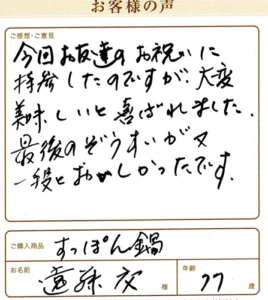 お客様の声
ご感想・ご意見
今回お友達のお祝いに
持参したのですが、大変
美味しいと喜ばれました。
最後のぞうすいが又
一段とおいしかったです。
ご購入商品 すっぽん鍋
お名前 様 年齢 77 歳